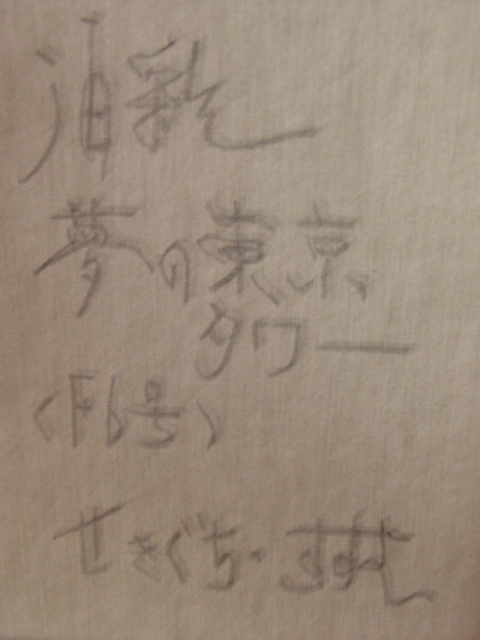 油彩
夢の東京
タワー
(F6号)
せきぐち・すすむ